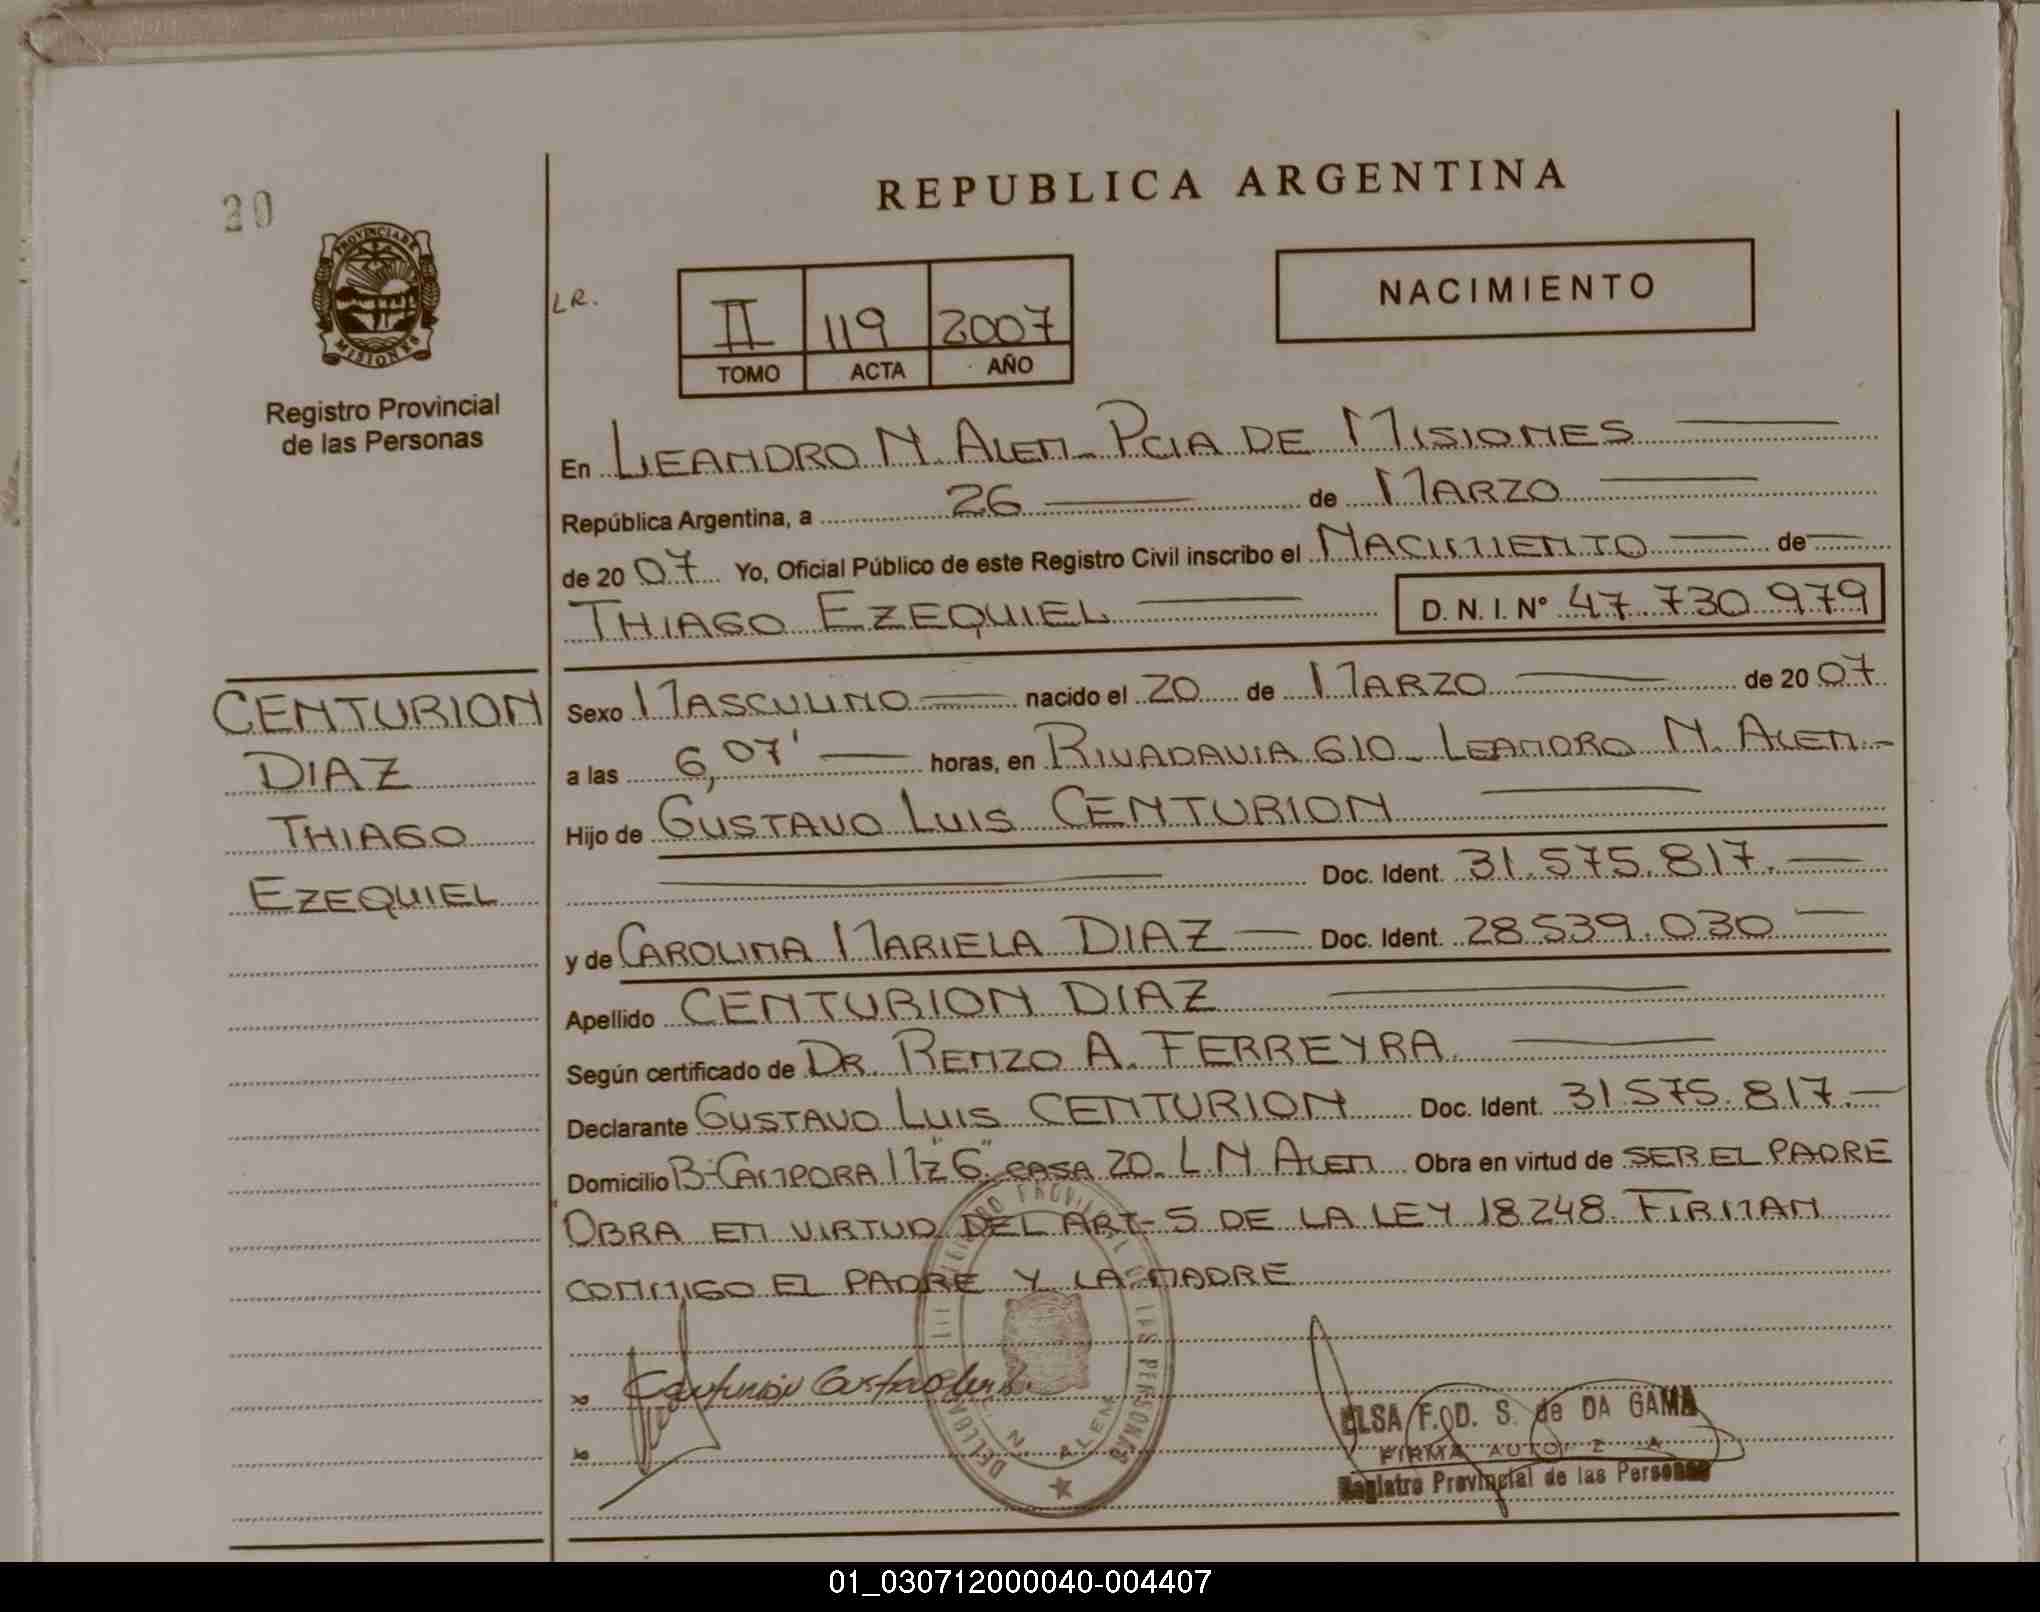 20
REPUBLICA ARGENTINA
PROVINCIA DE
MISIONES
Registro Provincial
de las Personas
LR.
II 119 2007
TOMO ACTA AÑO
NACIMIENTO
En LEANDRO N. ALEM - PCIA DE MISIONES
República Argentina, a 26 de MARZO
de 20 07 Yo, Oficial Público de este Registro Civil inscribo el NACIMIENTO de
THIAGO EZEQUIEL D. N. I. Nº 47.730.979
CENTURION
DIAZ
THIAGO
EZEQUIEL
Sexo MASCULINO nacido el 20 de MARZO de 20 07
a las 6,07' horas, en RIVADAVIA 610 - LEANDRO N. ALEM.-
Hijo de GUSTAVO LUIS CENTURION
Doc. Ident. 31.575.817.-
y de CAROLINA MARIELA DIAZ Doc. Ident. 28.539.030
Apellido CENTURION DIAZ
Según certificado de DR. RENZO A. FERREYRA
Declarante GUSTAVO LUIS CENTURION Doc. Ident. 31.575.817.-
Domicilio Bº CAMPORA Mz "6" CASA 20 - L.N. ALEM Obra en virtud de SER EL PADRE
OBRA EN VIRTUD DEL ART- 5 DE LA LEY 18248. FIRMAN
CONMIGO EL PADRE Y LA MADRE
Centurión Gustavo Luis
LAS PERSONAS
N. ALEM
ELSA F. D. S. de DA GAMA
FIRMA
Registro Provincial de las Personas
01_030712000040-004407